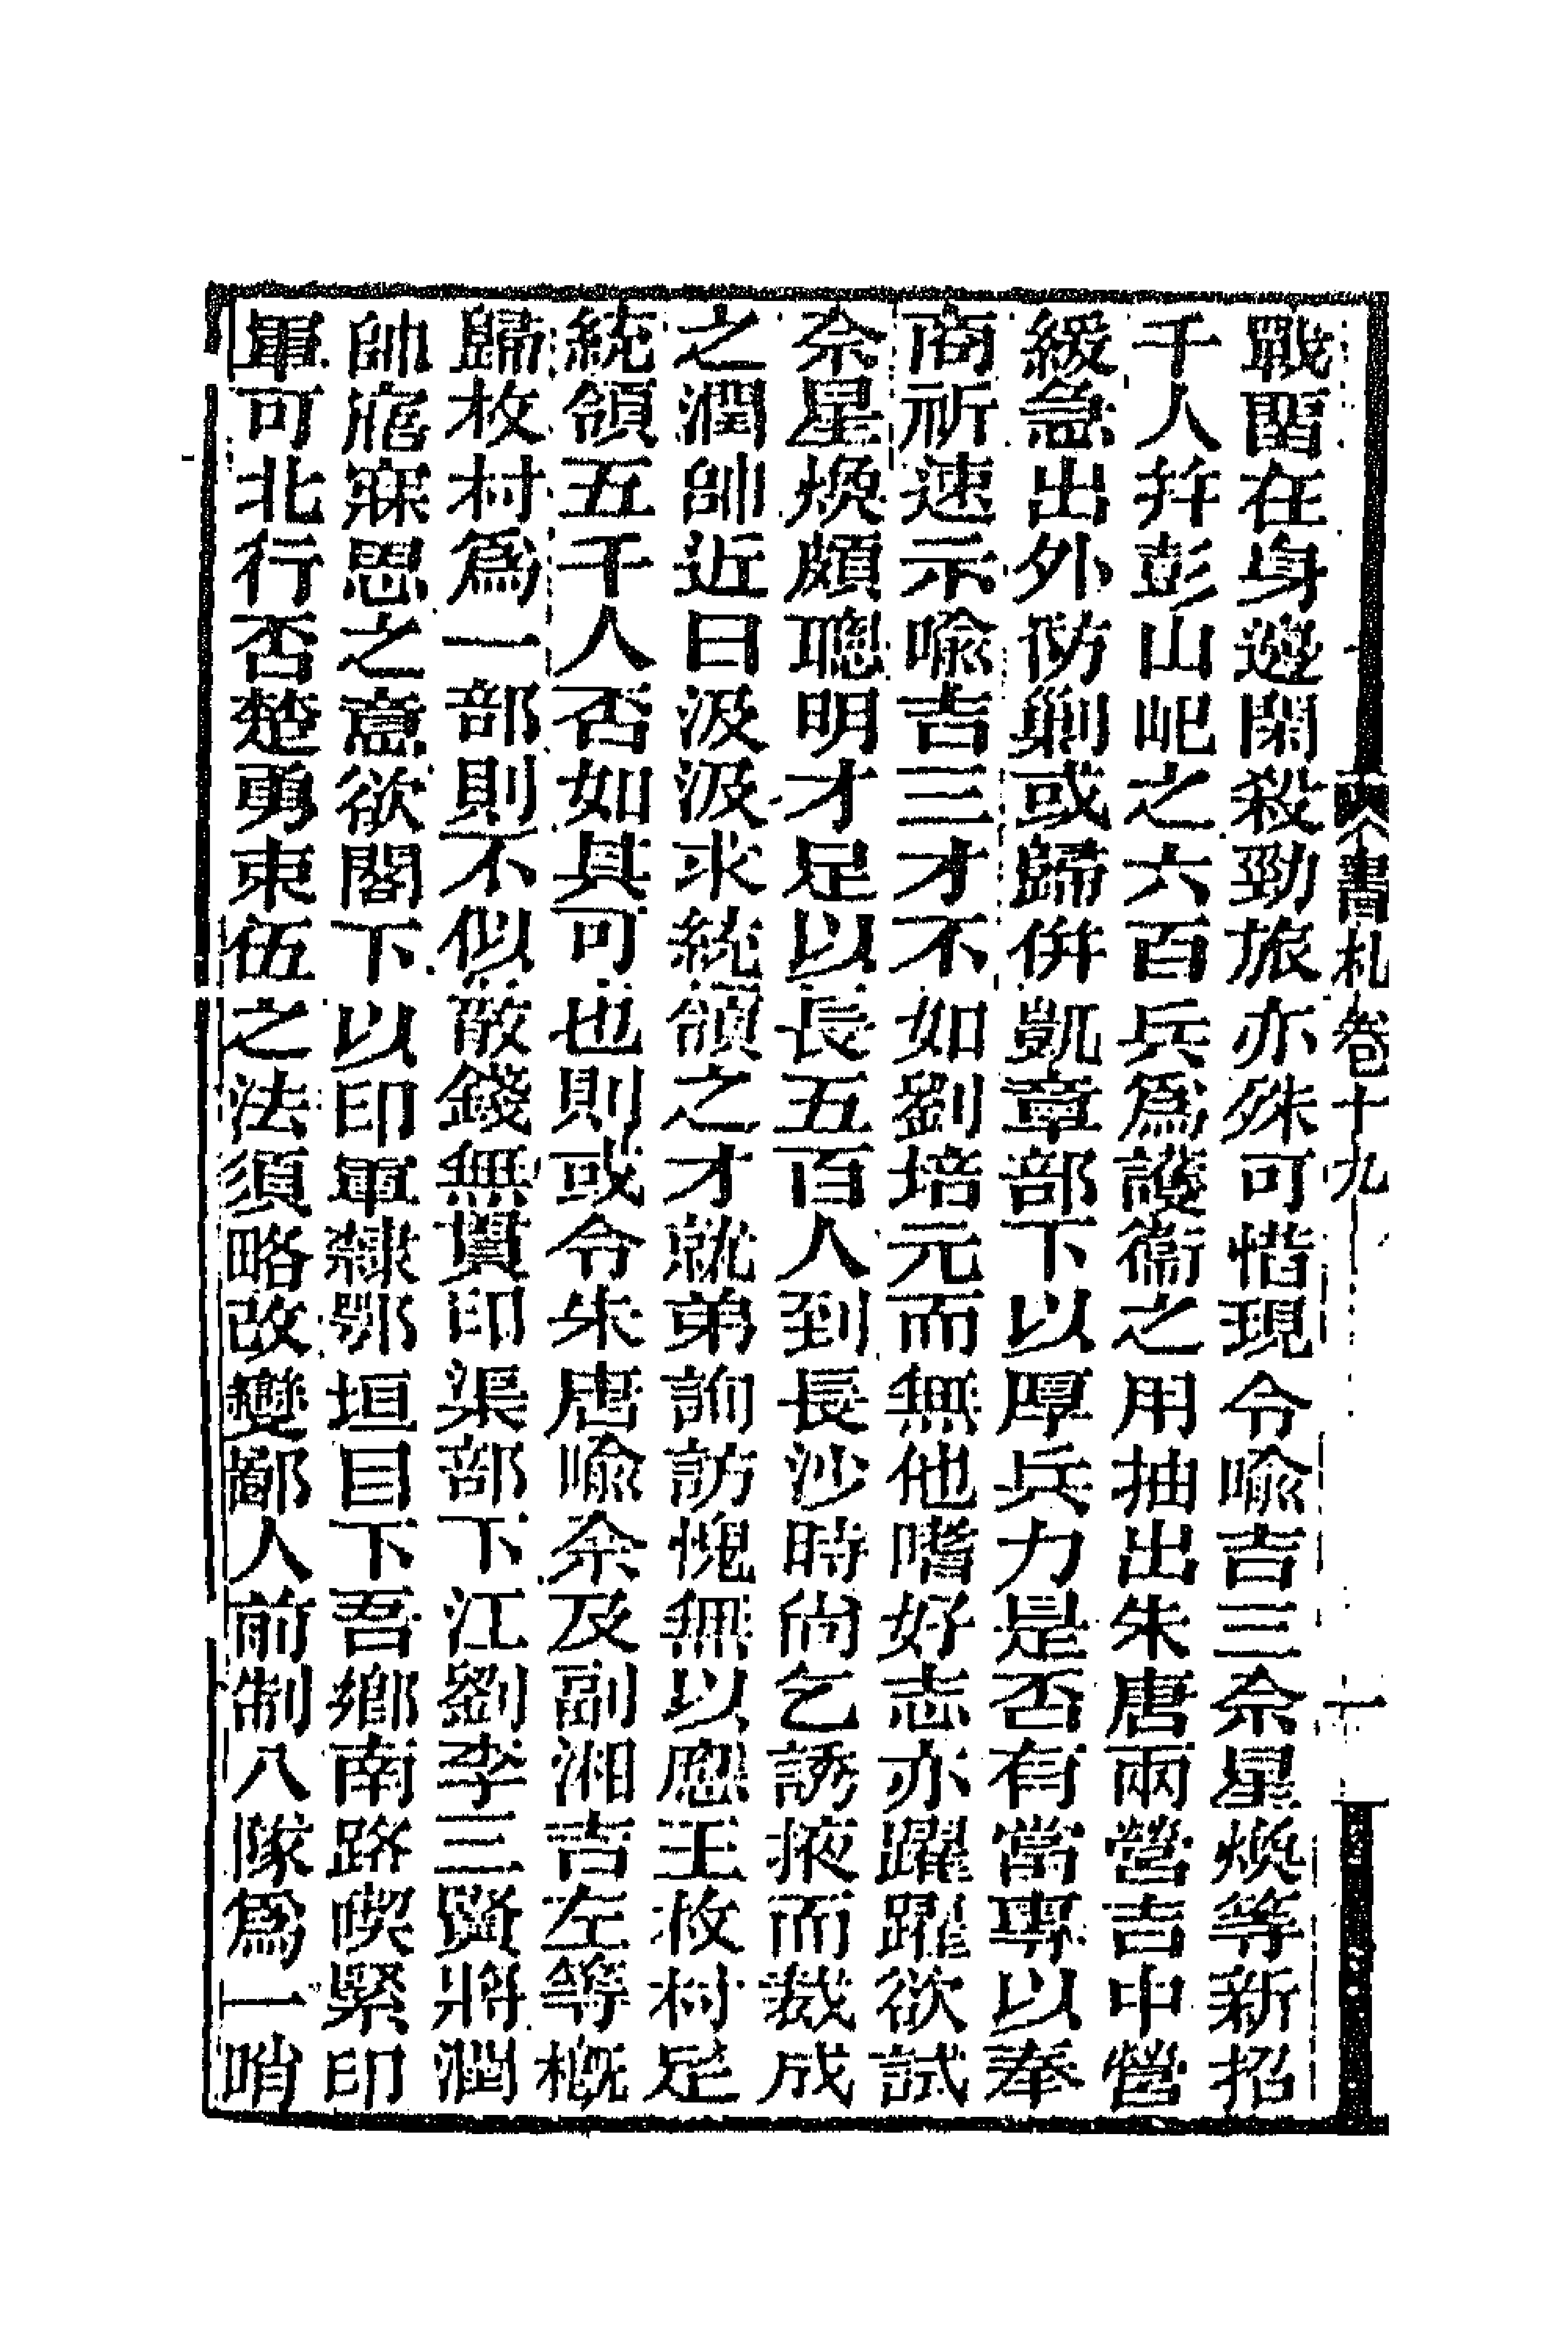 書札卷十九
十一
戰罶在身邊閑殺勁旅亦殊可惜現令喻吉三余星煥等新招
千人幷彭山屺之六百兵爲護衞之用抽出朱唐兩營吉中營
緩急出外防剿或歸併凱章部下以厚兵力是否有當專以奉
商祈速示喻吉三才不如劉培元而無他嗜好志亦躍躍欲試
余星煥頗聰明才足以長五百人到長沙時尚乞誘掖而裁成
之潤帥近日汲汲求統領之才就弟詢訪愧無以應王枚村足
統領五千人否如其可也則或令朱唐喻余及副湘吉左等槪
歸枚村爲一部則不似散錢無貫印渠部下江劉李三賢將潤
帥寤寐思之意欲閣下以印軍隸鄂垣目下吾鄉南路喫緊印
軍可北行否楚勇束伍之法須略改變鄙人前制八隊爲一哨